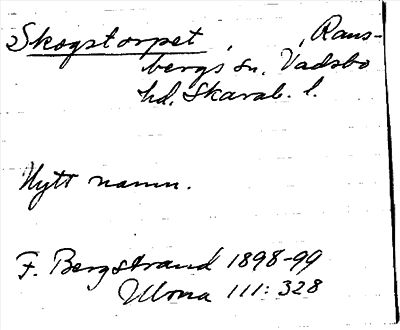 Skogstorpet, Rans-
bergs sn. Vadsbo
hd. Skarab. l.
Nytt namn.
F. Bergstrand 1898-99
111: 328